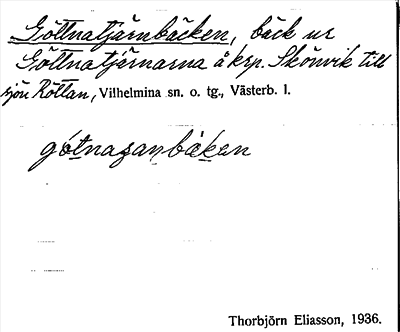 Göttnatjärnbäcken, bäck ur
Göttnatjärnarna å krp. Skönvik till
sjön Röttan, Vilhelmina sn. o. tg., Västerb. l.
gótnaʒanbäkən
Thorbjörn Eliasson, 1936.